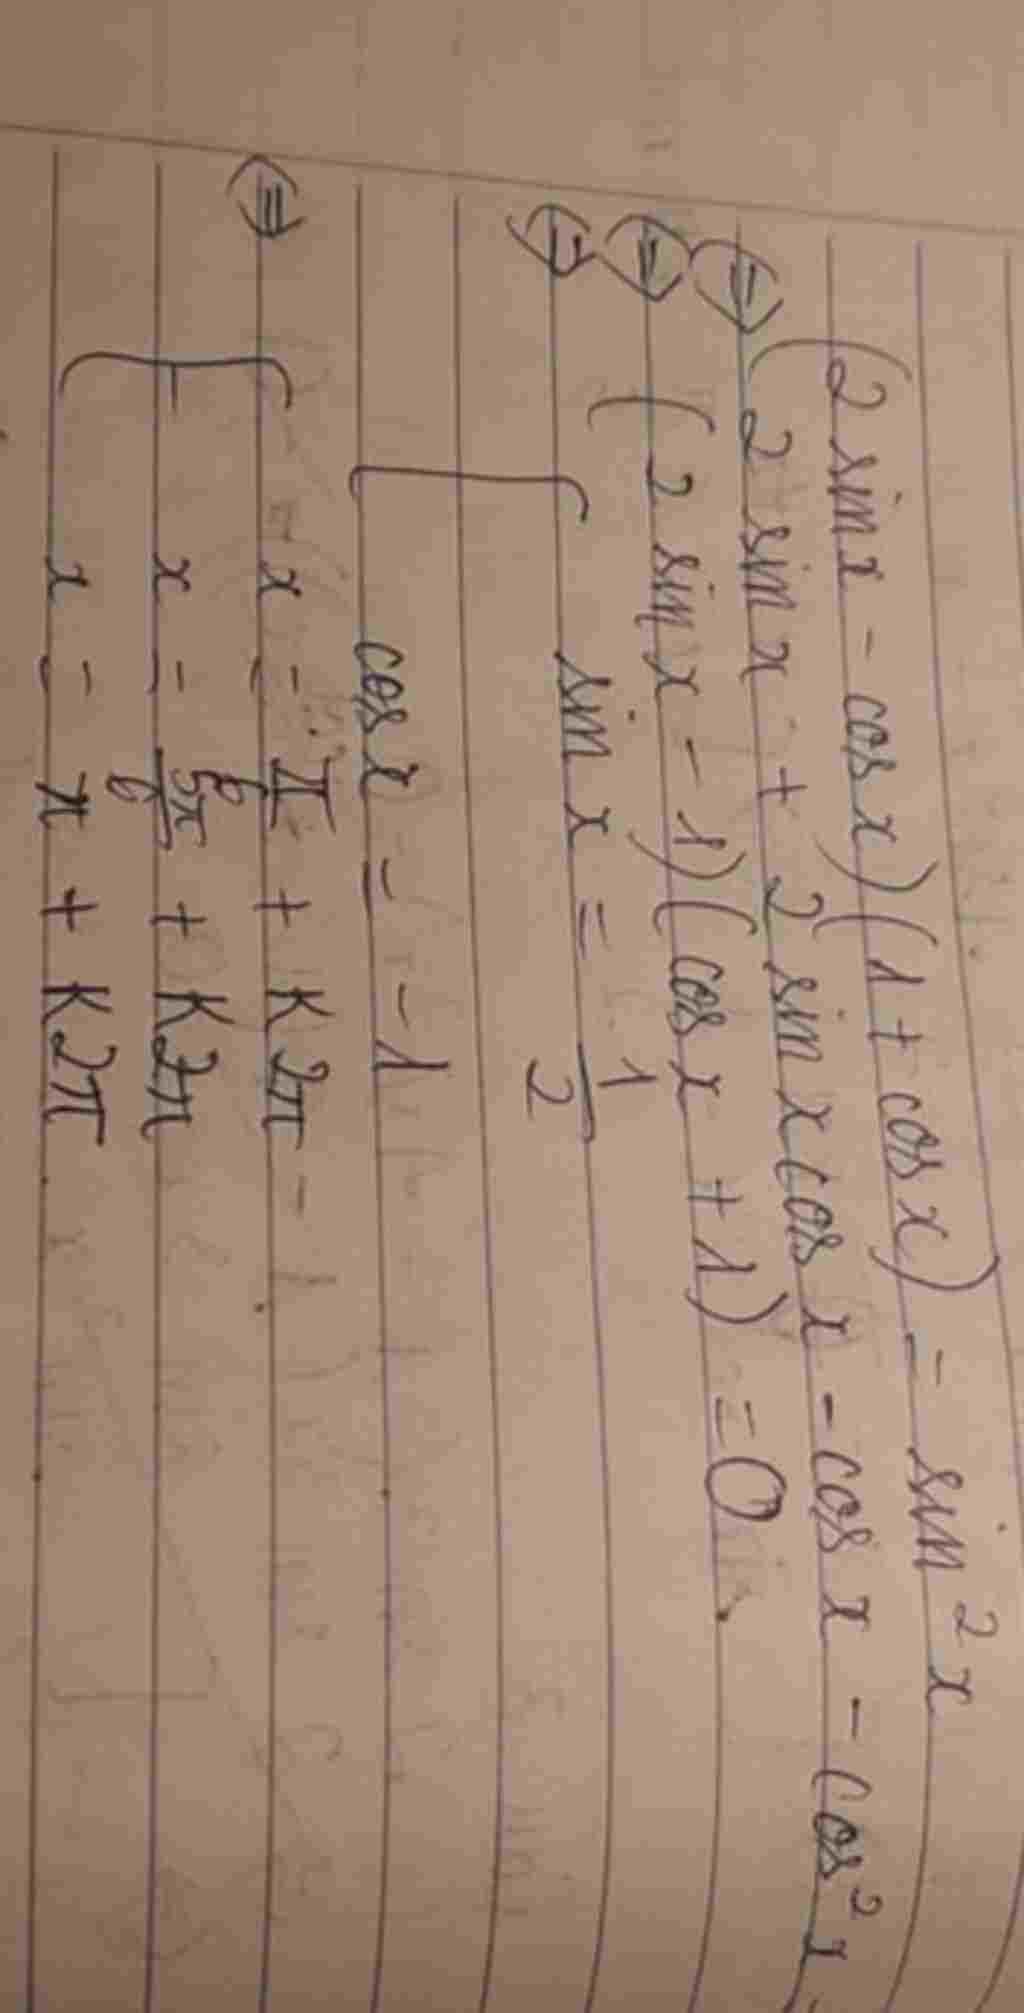 (2 sin x - cos x)(1 + cos x) = sin² x
⇔ 2 sin x + 2 sin x cos x - cos x - cos² x
⇔ (2 sin x - 1)(cos x + 1) = 0
⇔ [ sin x = 1/2
cos x = -1
⇔ [ x = π/6 + K2π
x = 5π/6 + K2π
x = π + K2π